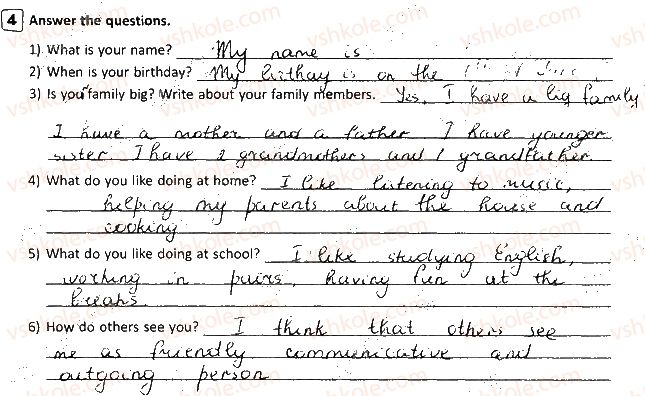 4 Answer the questions.
1) What is your name? My name is
2) When is your birthday? My bithay is on the
3) Is your family big? Write about your family members. Yes. I have a big family
I have a mother and a father I have younger
sister. I have 2 grandmothers and 1 grandfather
4) What do you like doing at home? I like listening to music,
helping my parents about the house and
cooking
5) What do you like doing at school? I like studying English,
working in pairs, having fun at the
breaks.
6) How do others see you? I think that others see
me as friendly communicative and
outgoing person